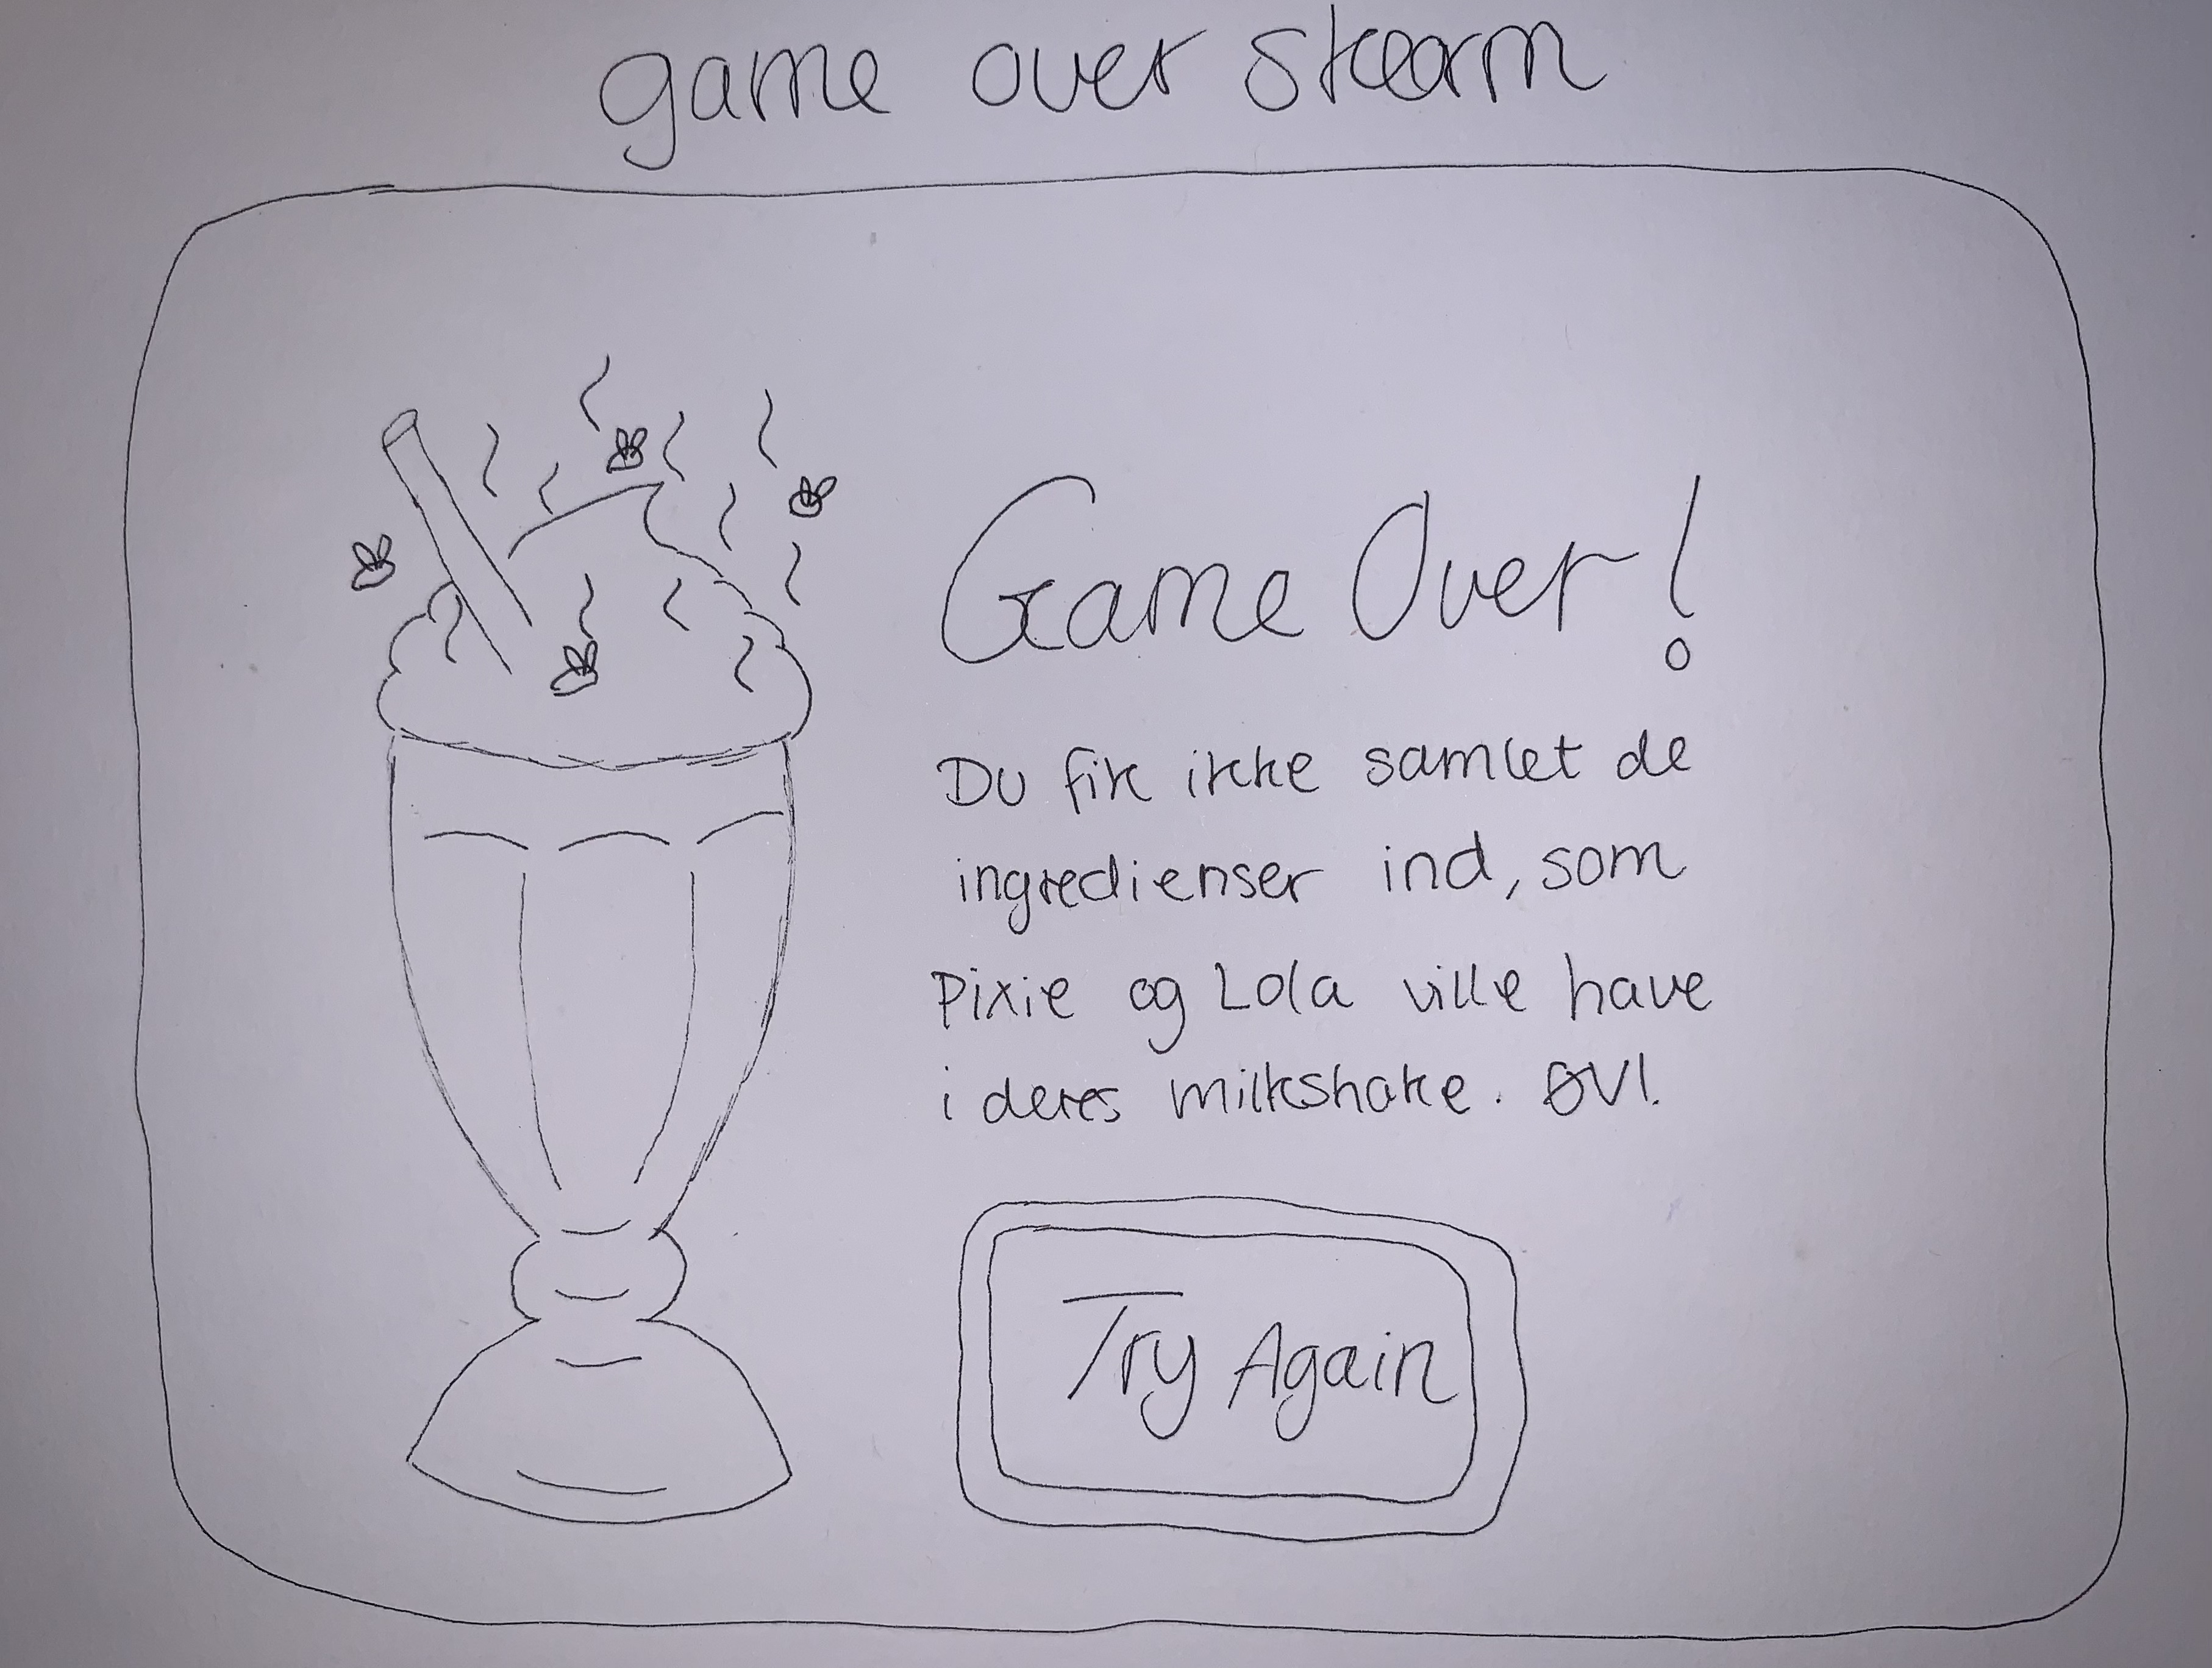 game over skærm
Game Over!
Du fik ikke samlet de
ingredienser ind, som
Pixie og Lola ville have
i deres milkshake. ØV!
Try Again